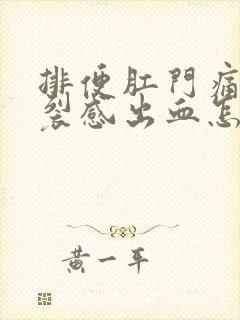 排便肛門痛
裂感出血怎
黃一平